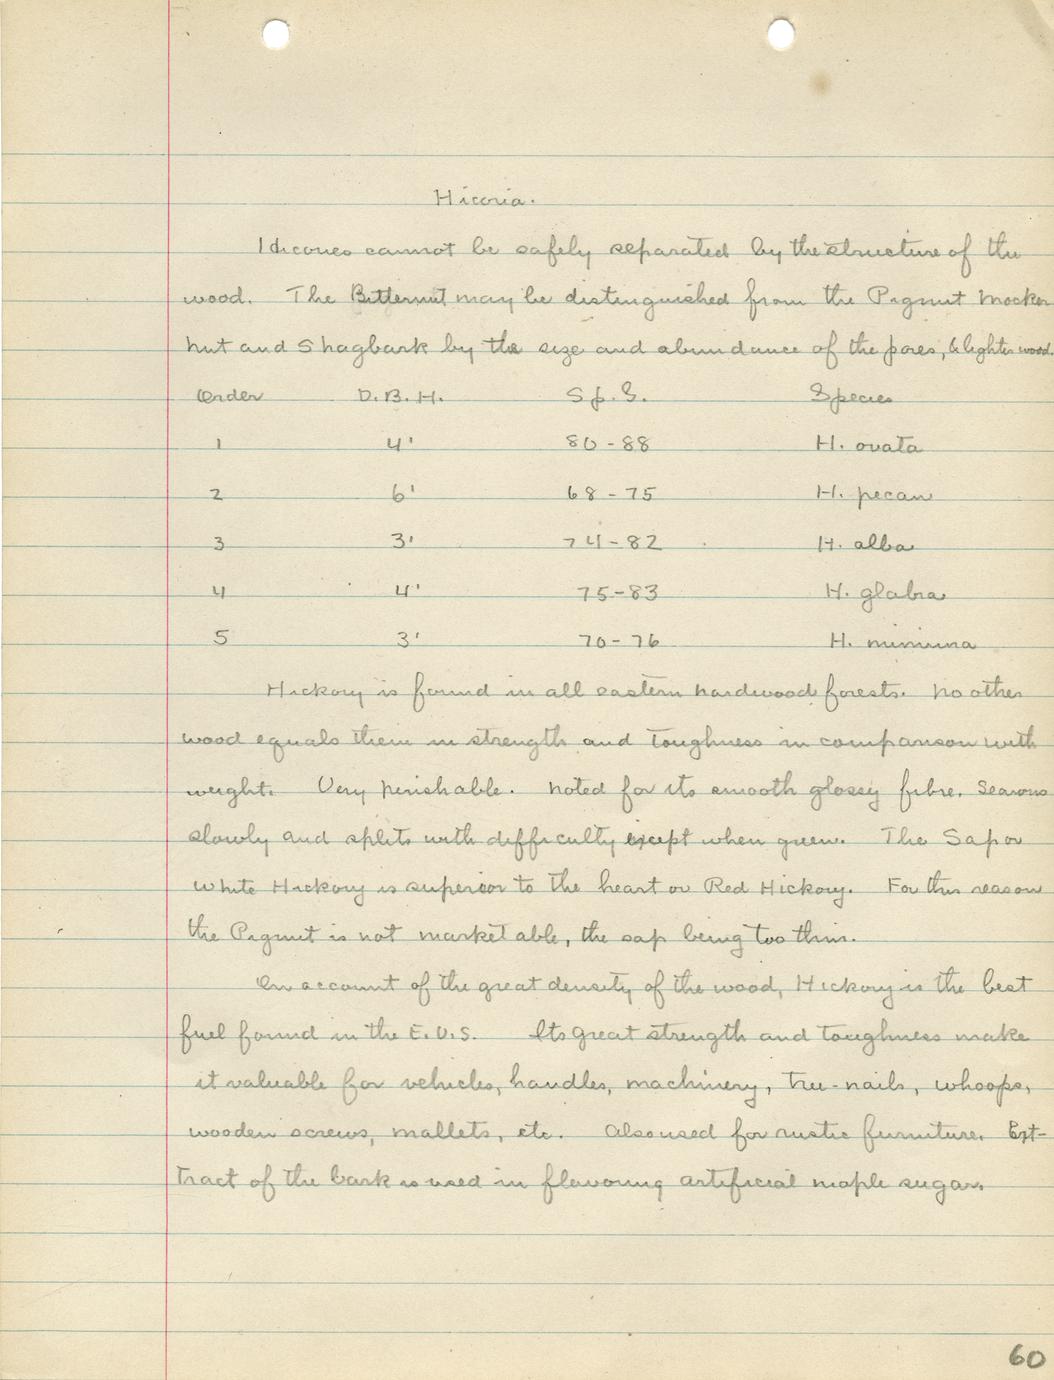 Hicoria.
Hicories cannot be safely separated by the structure of the
wood. The Bitternut may be distinguished from the Pignut Mocker
nut and Shagbark by the size and abundance of the pores, & lighter wood.
Order D.B.H. Sp. G. Species
1 4' 80-88 H. ovata
2 6' 68-75 H. pecan
3 3' 74-82 H. alba
4 4' 75-83 H. glabra
5 3' 70-76 H. minima
Hickory is found in all eastern hardwood forests. No other
wood equals them in strength and toughness in comparison with
weight. Very perishable. Noted for its smooth glossy fibre. Seasons
slowly and splits with difficulty except when green. The Sap or
White Hickory is superior to the heart or Red Hickory. For this reason
the Pignut is not marketable, the sap being too thin.
On account of the great density of the wood, Hickory is the best
fuel found in the E.U.S. Its great strength and toughness make
it valuable for vehicles, handles, machinery, tree-nails, whoops,
wooden screws, mallets, etc. Also used for rustic furniture. Ext-
tract of the bark is used in flavouring artificial maple sugar.
60